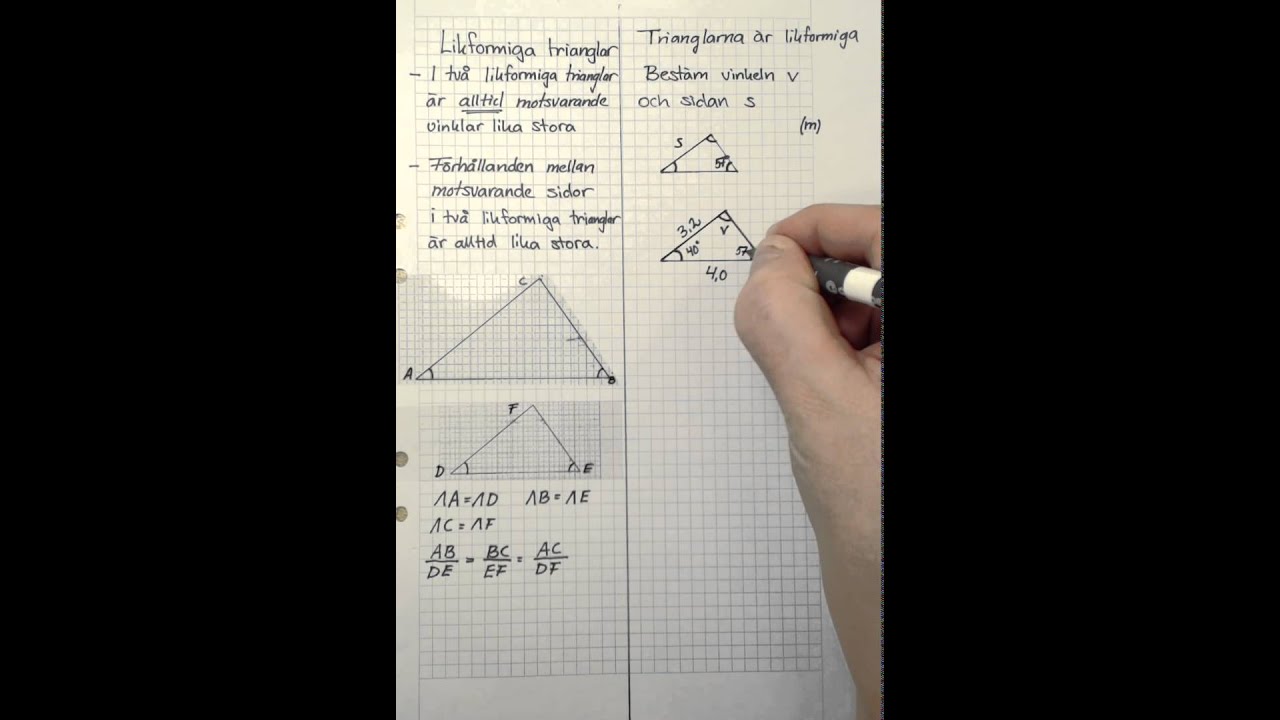 Likformiga trianglar
- I två likformiga trianglar
är alltid motsvarande
vinklar lika stora
- Förhållanden mellan
motsvarande sidor
i två likformiga trianglar
är alltid lika stora.
C
A
B
F
D
E
∧A=∧D ∧B=∧E
∧C=∧F
AB/DE = BC/EF = AC/DF
Trianglarna är likformiga
Bestäm vinkeln v
och sidan s
(m)
s
3,2
v
40°
57
4,0